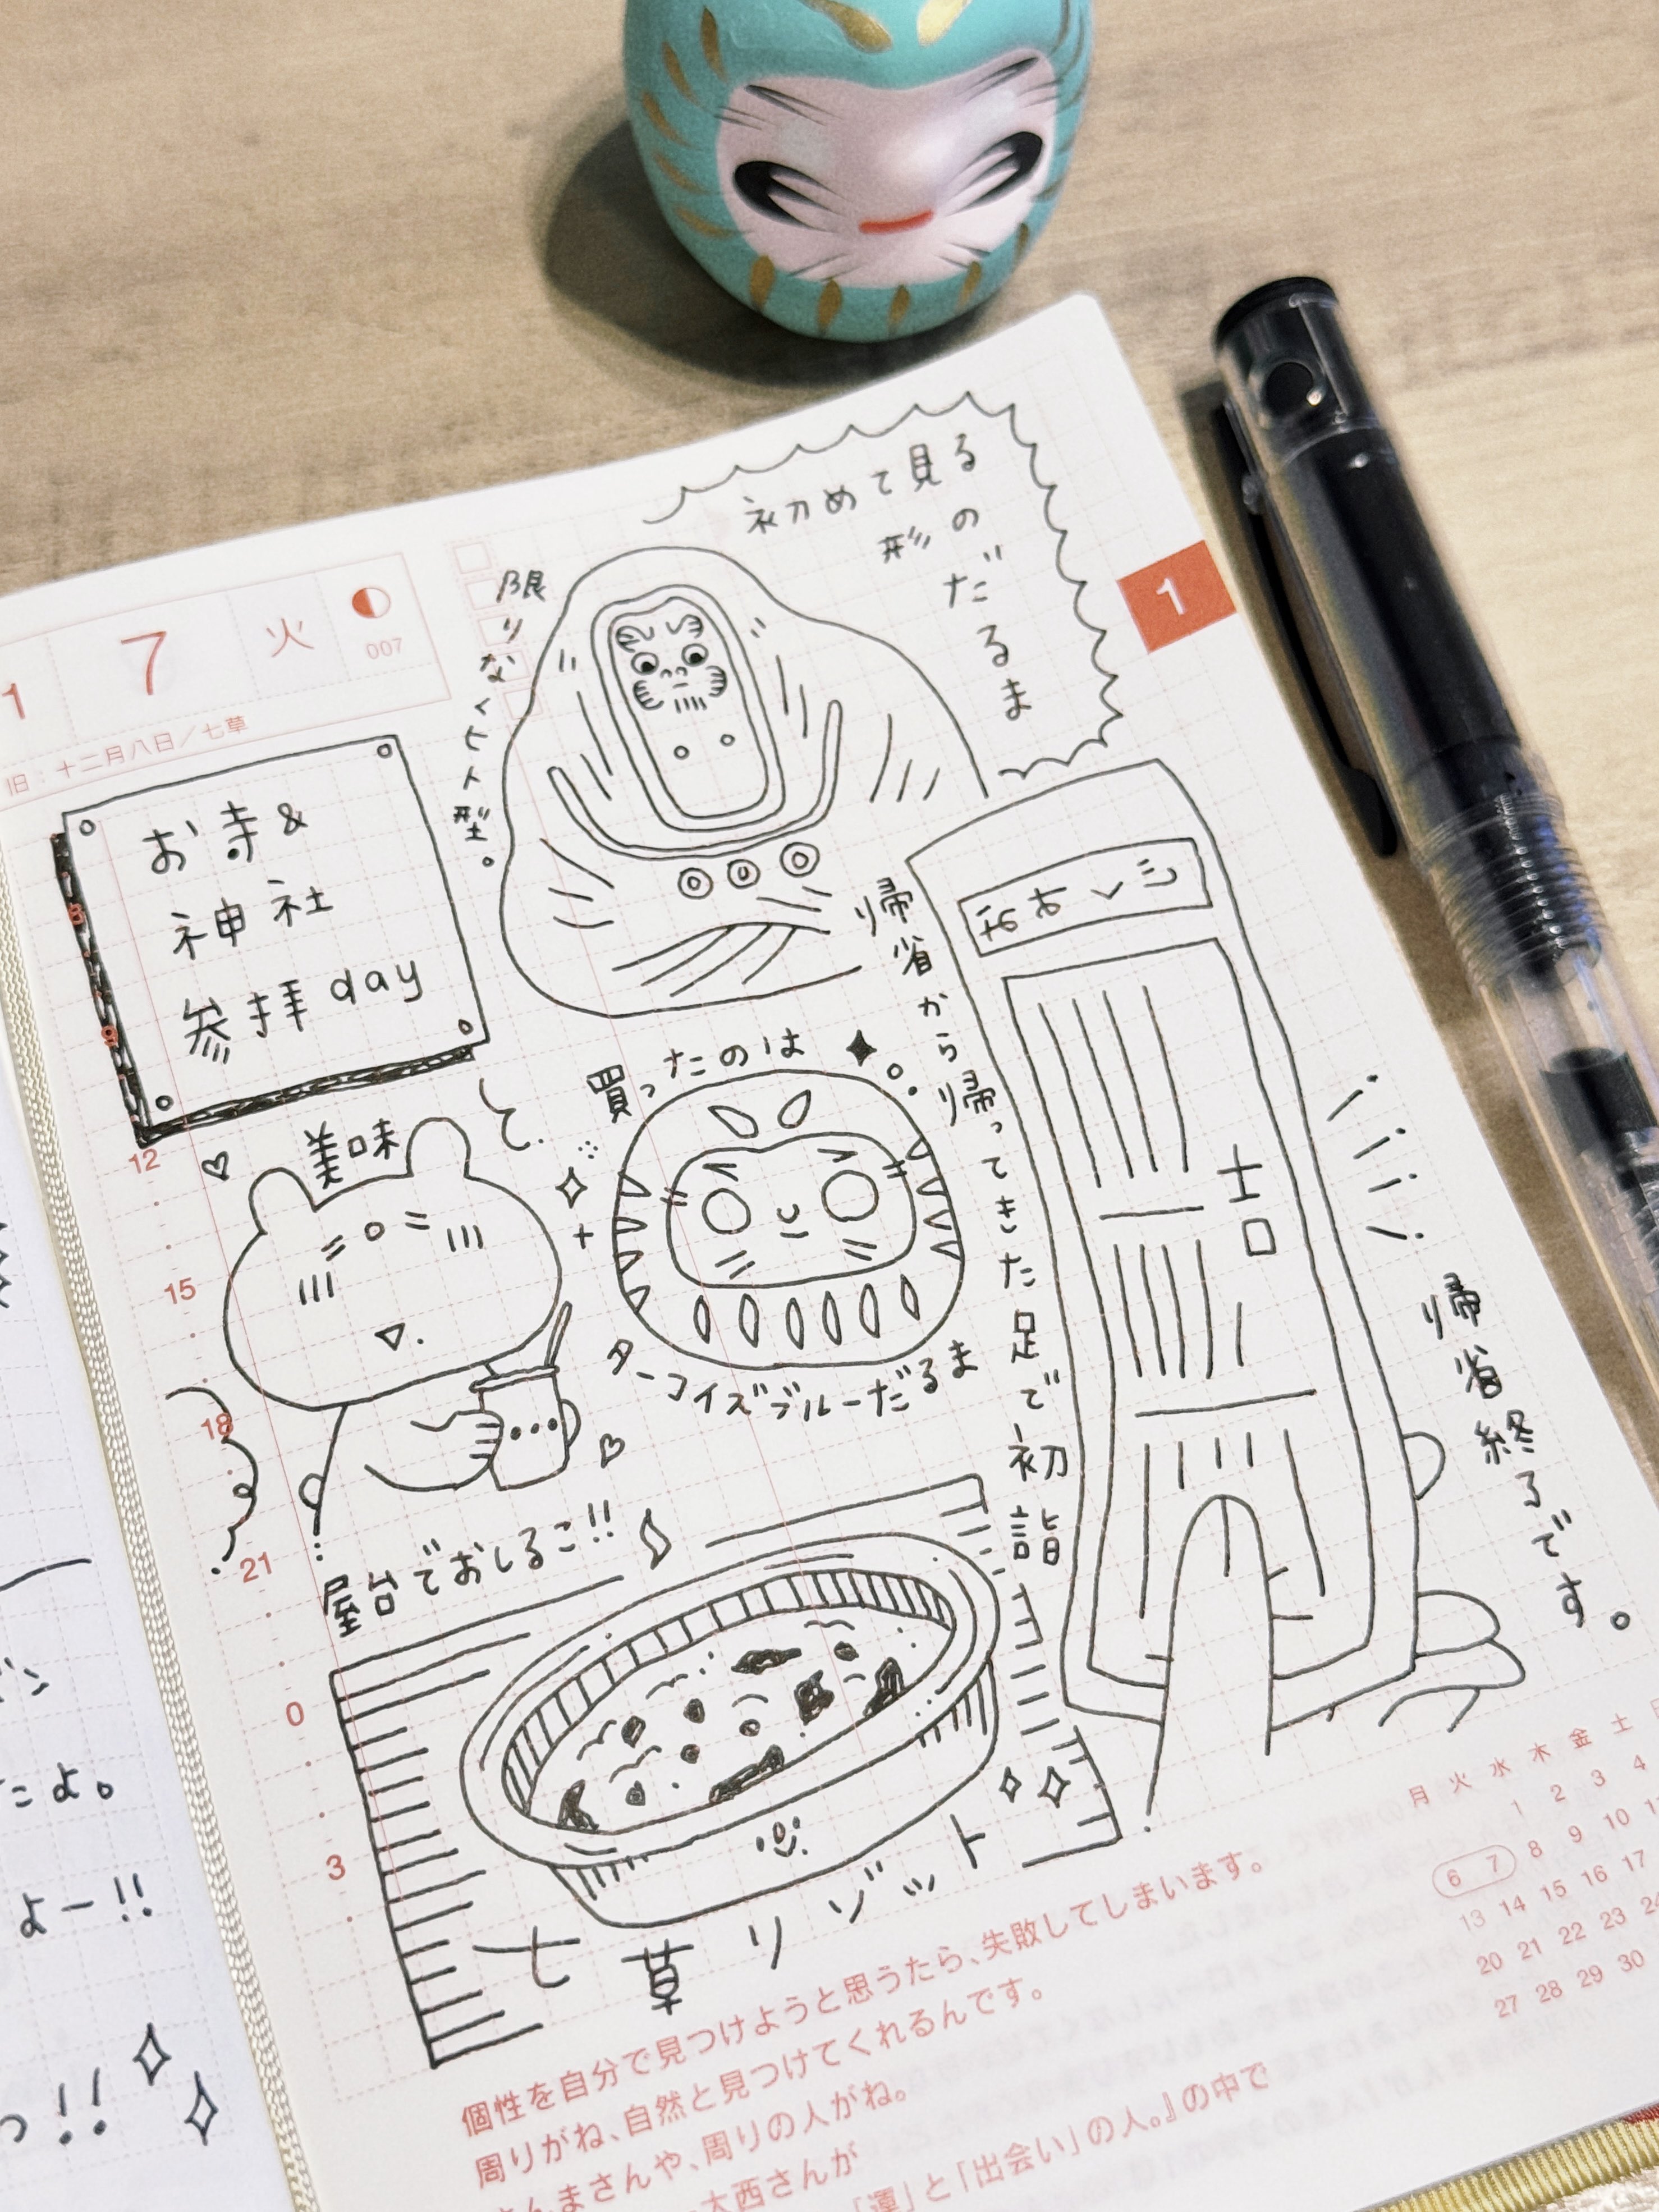 1 7 火
007
旧：十二月八日／七草
1
初めて見る
形の
だるま
限りなくヒト型。
お寺&
神社
参拝day
買ったのは
ターコイズブルーだるま
美味
と.
屋台でおしるこ!!
帰省から帰ってきた足で初詣
吉
帰省終了です。
七草リゾット
8
9
12
15
18
21
0
3
月 火 水 木 金 土
1 2 3 4
6 7 8 9 10
13 14 15 16 17
20 21 22 23
27 28 29 30
個性を自分で見つけようと思うたら、失敗してしまいます。
周りがね、自然と見つけてくれるんです。
さんまさんや、周りの人がね。
大西さんが
「運」と「出会い」の人。』の中で
よ。
よー!!
っ!!